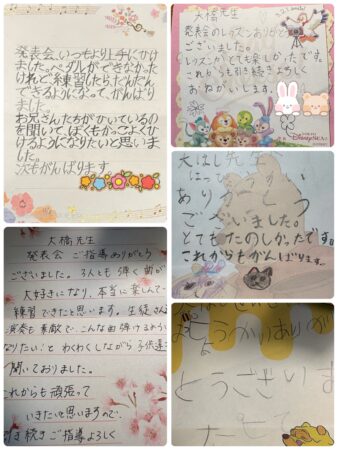 発表会、いつもより上手にひけ
ました。ペダルができなかった
けれど練習したらだんだん
できるようになって、がんばり
ました。
お兄さんたちがひいているの
を聞いて、ぼくもかっこよくひ
けるようになりたいと思いま
した。
次もがんばります
大橋先生
発表会のレッスンありがとう
ございました。
レッスンがとても楽しかったです。
これからも引き続きよろしく
おねがいします。
大はし先生
はっぴょうかい
ありがとう
ございました。
とてもたのしかったです。
これからもがんばります。
大橋先生
発表会 ご指導ありがとう
ございました。3人とも弾く曲が
大好きになり、本当に楽しんで
練習できたと思います。生徒さん
演奏も素敵で、こんな曲弾けるように
なりたい!とわくわくしながら子供達
聞いておりました。
これからも頑張って
いきたいと思いますので、
引き続きご指導よろしく
ょうかいありが
とうございま
した